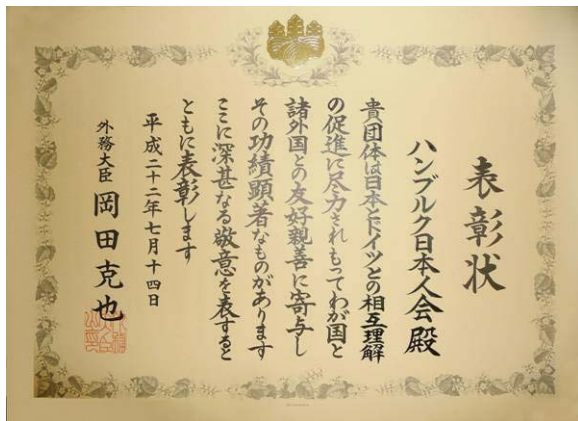 表彰状
ハンブルク日本人会殿
貴団体は日本とドイツとの相互理解
の促進に尽力されもってわが国と
諸外国との友好親善に寄与し
その功績顕著なものがあります
ここに深甚なる敬意を表すると
ともに表彰します
平成二十二年七月十四日
外務大臣 岡田克也